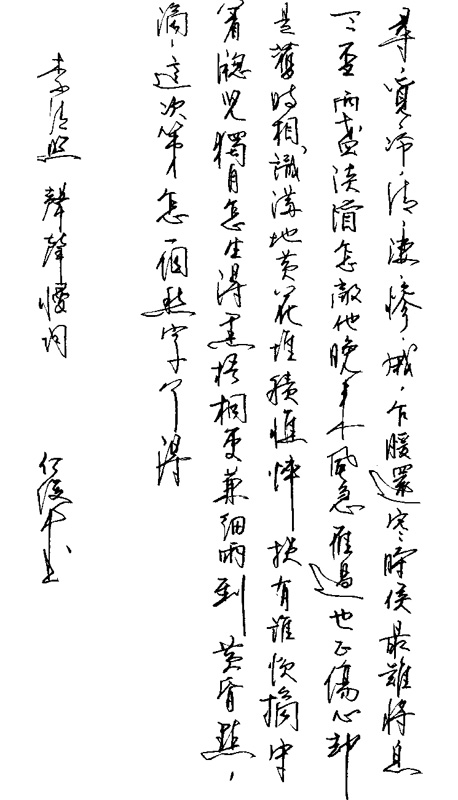 尋、覓、冷、清、淒、慘、戚、乍暖還寒時候最難將息
三盃兩盞淡酒怎敵他晚來風急雁過也正傷心卻
是舊時相識滿地黃花堆積憔悴損有誰忺摘守
著牕兒獨自怎生得黑梧桐更兼細雨到黃昏點、
滴、這次第怎一個愁字了得
李清照 聲聲慢詞 書